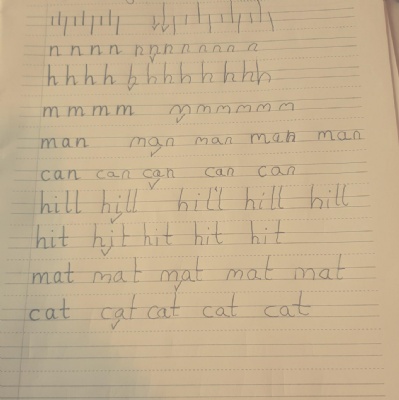 n n n n n n n n n n n a
h h h h h h h h h h h h
m m m m m m m m m m
man man man man man
can can can can can
hill hill hill hill hill
hit hit hit hit hit
mat mat mat mat mat
cat cat cat cat cat